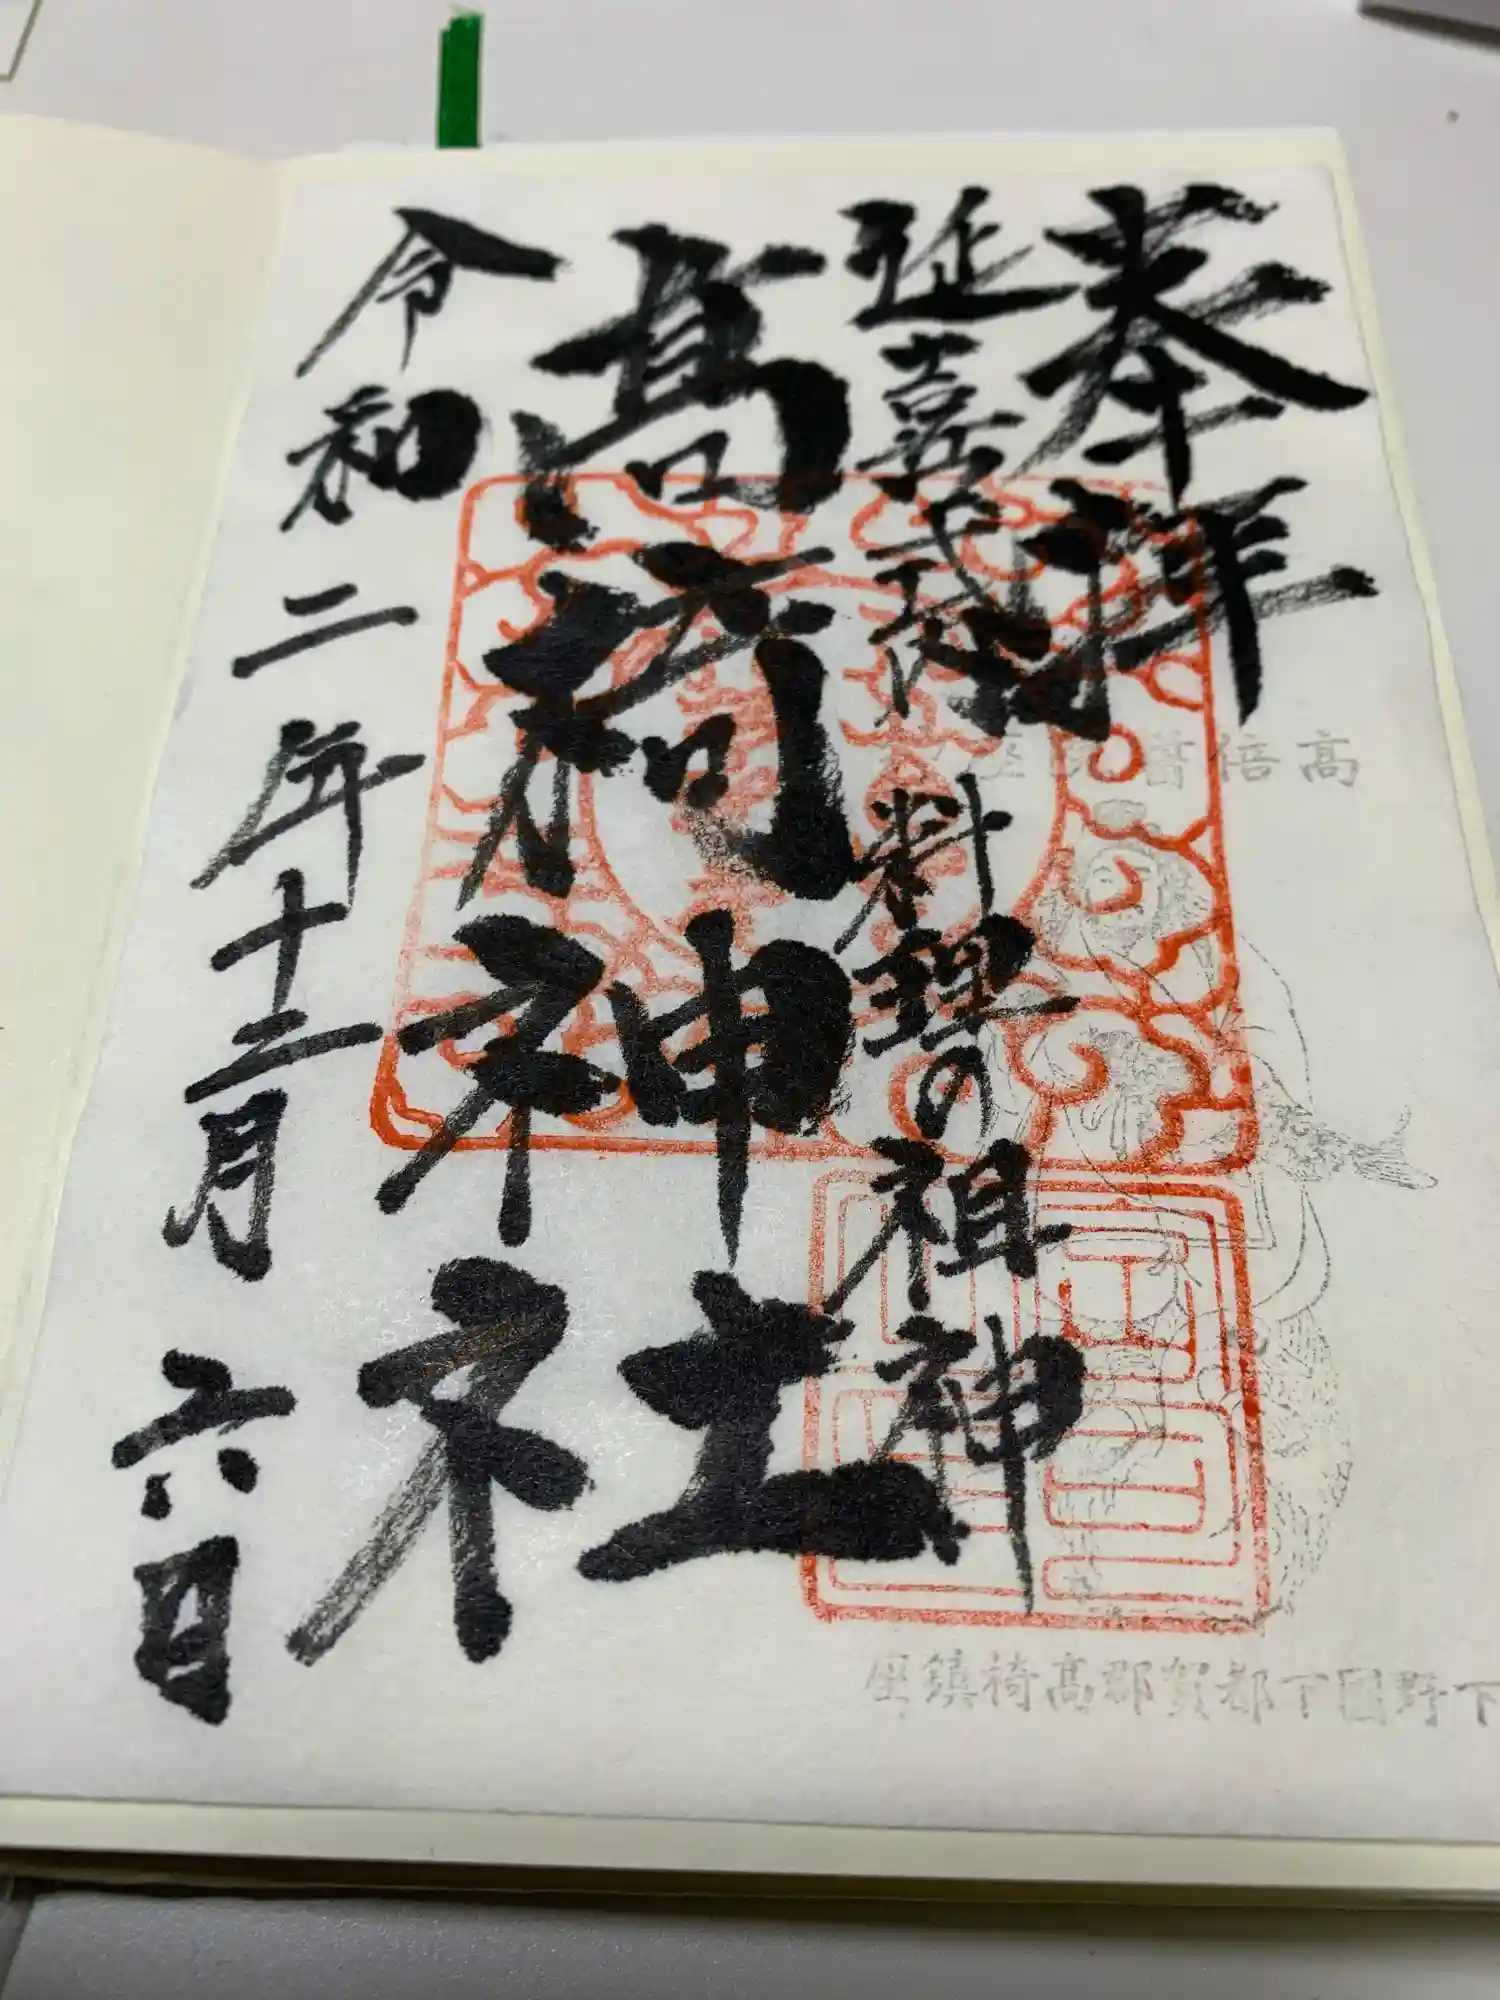 奉拝
延喜式内
料理の祖神
高椅神社
令和二年十二月六日
下野国下都賀郡高椅鎮座